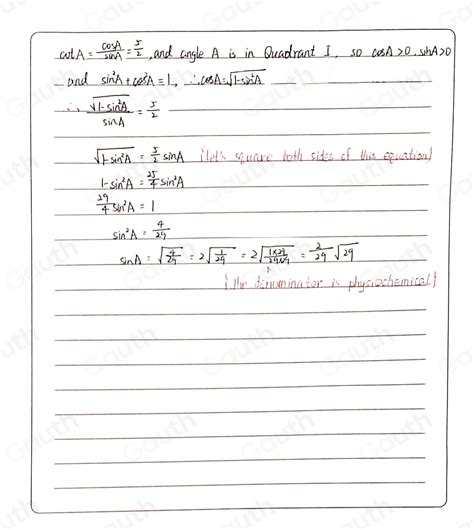 cot A = cosA/sinA = 5/2, and angle A is in Quadrant I, so cosA >0, sinA>0
and sin²A + cos²A = 1, ∴ cosA = √(1-sin²A)
∴ √(1-sin²A)/sinA = 5/2
√(1-sin²A) = 5/2 sinA (let's square both sides of this equation)
1-sin²A = 25/4 sin²A
29/4 sin²A = 1
sin²A = 4/29
sinA = √(4/29) = 2√(1/29) = 2√(1×29/29×29) = 2/29 √29
(the denominator is physiochemical)